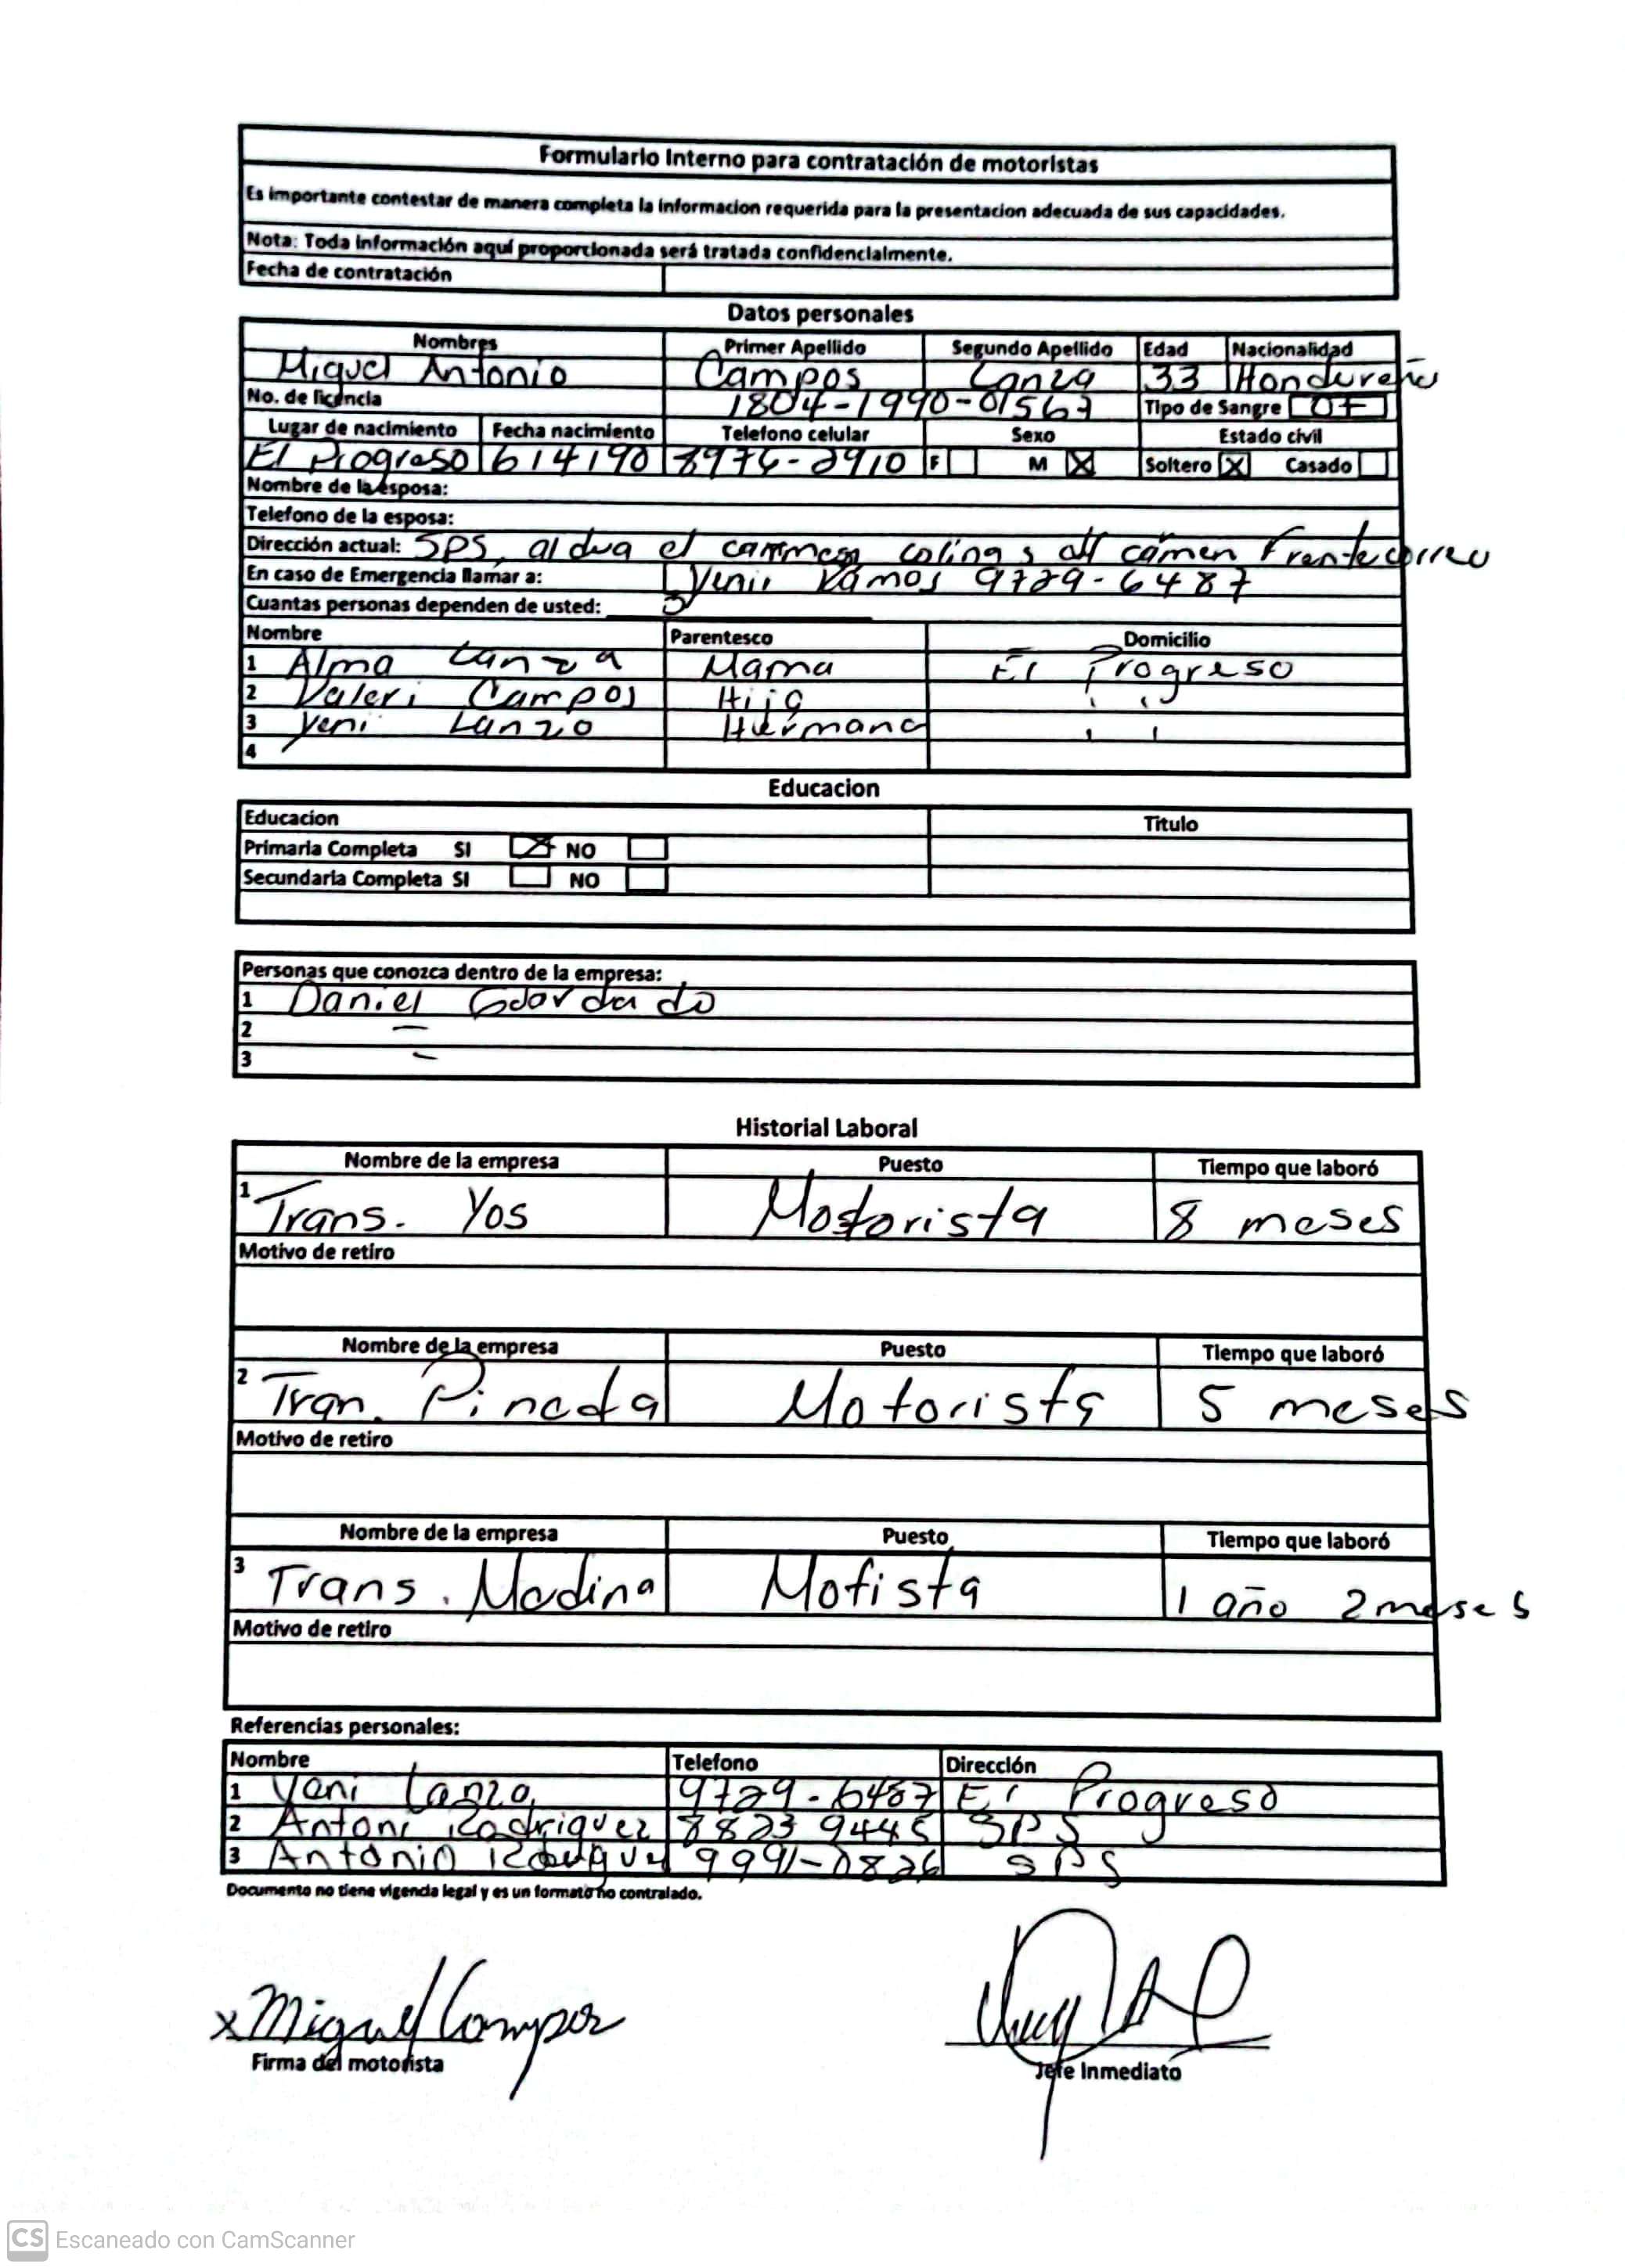 Formulario Interno para contratación de motoristas
Es importante contestar de manera completa la informacion requerida para la presentacion adecuada de sus capacidades.
Nota: Toda información aquí proporcionada será tratada confidencialmente.
Fecha de contratación
Datos personales
Nombres Primer Apellido Segundo Apellido Edad Nacionalidad
Miguel Antonio Campos Lanza 33 Hondureño
No. de licencia 1804-1990-01567 Tipo de Sangre O+
Lugar de nacimiento Fecha nacimiento Telefono celular Sexo Estado civil
El Progreso 6/4/90 8976-2910 F M X Soltero X Casado
Nombre de la esposa:
Telefono de la esposa:
Dirección actual: SPS, aldea el carmen colinas del carmen frente correo
En caso de Emergencia llamar a: Yenir Ramos 9729-6487
Cuantas personas dependen de usted: 3
Nombre Parentesco Domicilio
1 Alma Lanza Mama El Progreso
2 Valeri Campos Hija ' '
3 Yeni Lanzo Huermana ' '
4
Educacion
Educacion Titulo
Primaria Completa SI X NO
Secundaria Completa SI NO
Personas que conozca dentro de la empresa:
1 Daniel Goardado
2 –
3 –
Historial Laboral
Nombre de la empresa Puesto Tiempo que laboró
1 Trans. Yos Motorista 8 meses
Motivo de retiro
Nombre de la empresa Puesto Tiempo que laboró
2 Tran. Pineda Motorista 5 meses
Motivo de retiro
Nombre de la empresa Puesto Tiempo que laboró
3 Trans. Madina Motista 1 año 2 meses
Motivo de retiro
Referencias personales:
Nombre Telefono Dirección
1 Yeni Lanza 9729-6487 El Progreso
2 Antoni Rodriguez 8823 9445 SPS
3 Antonio 9991-0826 SPS
Documento no tiene vigencia legal y es un formato no contralado.
x Miguel Campos
Firma del motorista Jefe Inmediato
CS Escaneado con CamScanner